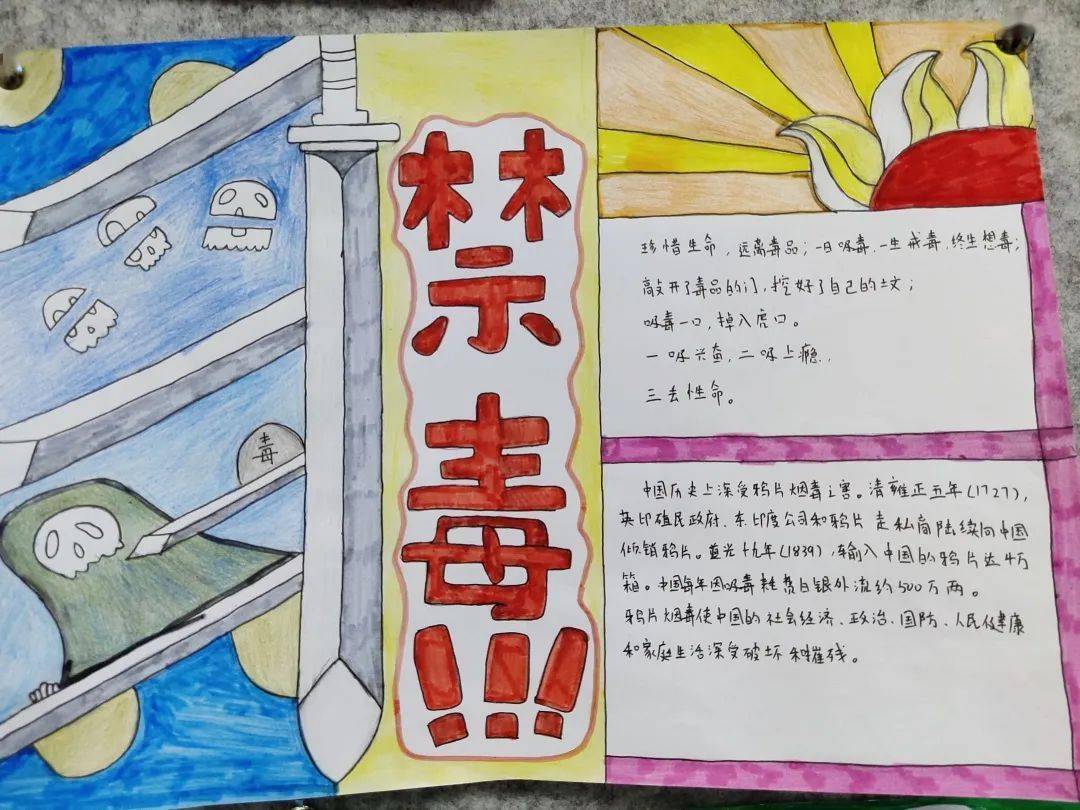 毒
禁毒!!!
珍惜生命，远离毒品；一日吸毒，一生戒毒，终生想毒；
敲开了毒品的门，挖好了自己的坟；
吸毒一口，掉入虎口。
一吸兴奋，二吸上瘾，
三丢性命。
中国历史上深受鸦片烟毒之害。清雍正五年(1727)，
英印殖民政府、东印度公司和鸦片走私商陆续向中国
倾销鸦片。道光十九年(1839)，输入中国的鸦片达4万
箱。中国每年因吸毒耗费白银外流约500万两。
鸦片烟毒使中国的社会经济、政治、国防、人民健康
和家庭生活深受破坏和摧残。